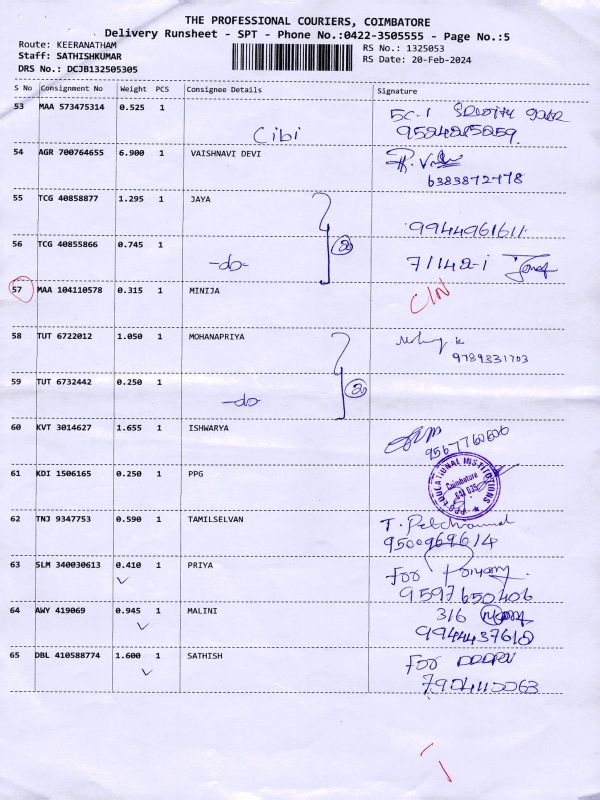 THE PROFESSIONAL COURIERS, COIMBATORE
Delivery Runsheet - SPT - Phone No.:0422-3505555 - Page No.:5
Route: KEERANATHAM RS No.: 1325053
Staff: SATHISHKUMAR RS Date: 20-Feb-2024
DRS No.: DCJB132505305
S No Consignment No Weight PCS Consignee Details Signature
53 MAA 573475314 0.525 1
Cibi
54 AGR 700764655 6.900 1 VAISHNAVI DEVI
6383872778
55 TCG 40858877 1.295 1 JAYA
9944961611
56 TCG 40855866 0.745 1
-do- 2
57 MAA 104110578 0.315 1 MINIJA
58 TUT 6722012 1.050 1 MOHANAPRIYA
9789331703
59 TUT 6732442 0.250 1
-do- 2
60 KVT 3014627 1.655 1 ISHWARYA
9567760606
61 KDI 1506165 0.250 1 PPG
PPG EDUCATIONAL INSTITUTIONS
Coimbatore
641 035
62 TNJ 9347753 0.590 1 TAMILSELVAN
9500969614
63 SLM 340030613 0.410 1 PRIYA
For
9597650406
64 AWY 419069 0.945 1 MALINI
316
9944437618
65 DBL 410588774 1.600 1 SATHISH
For